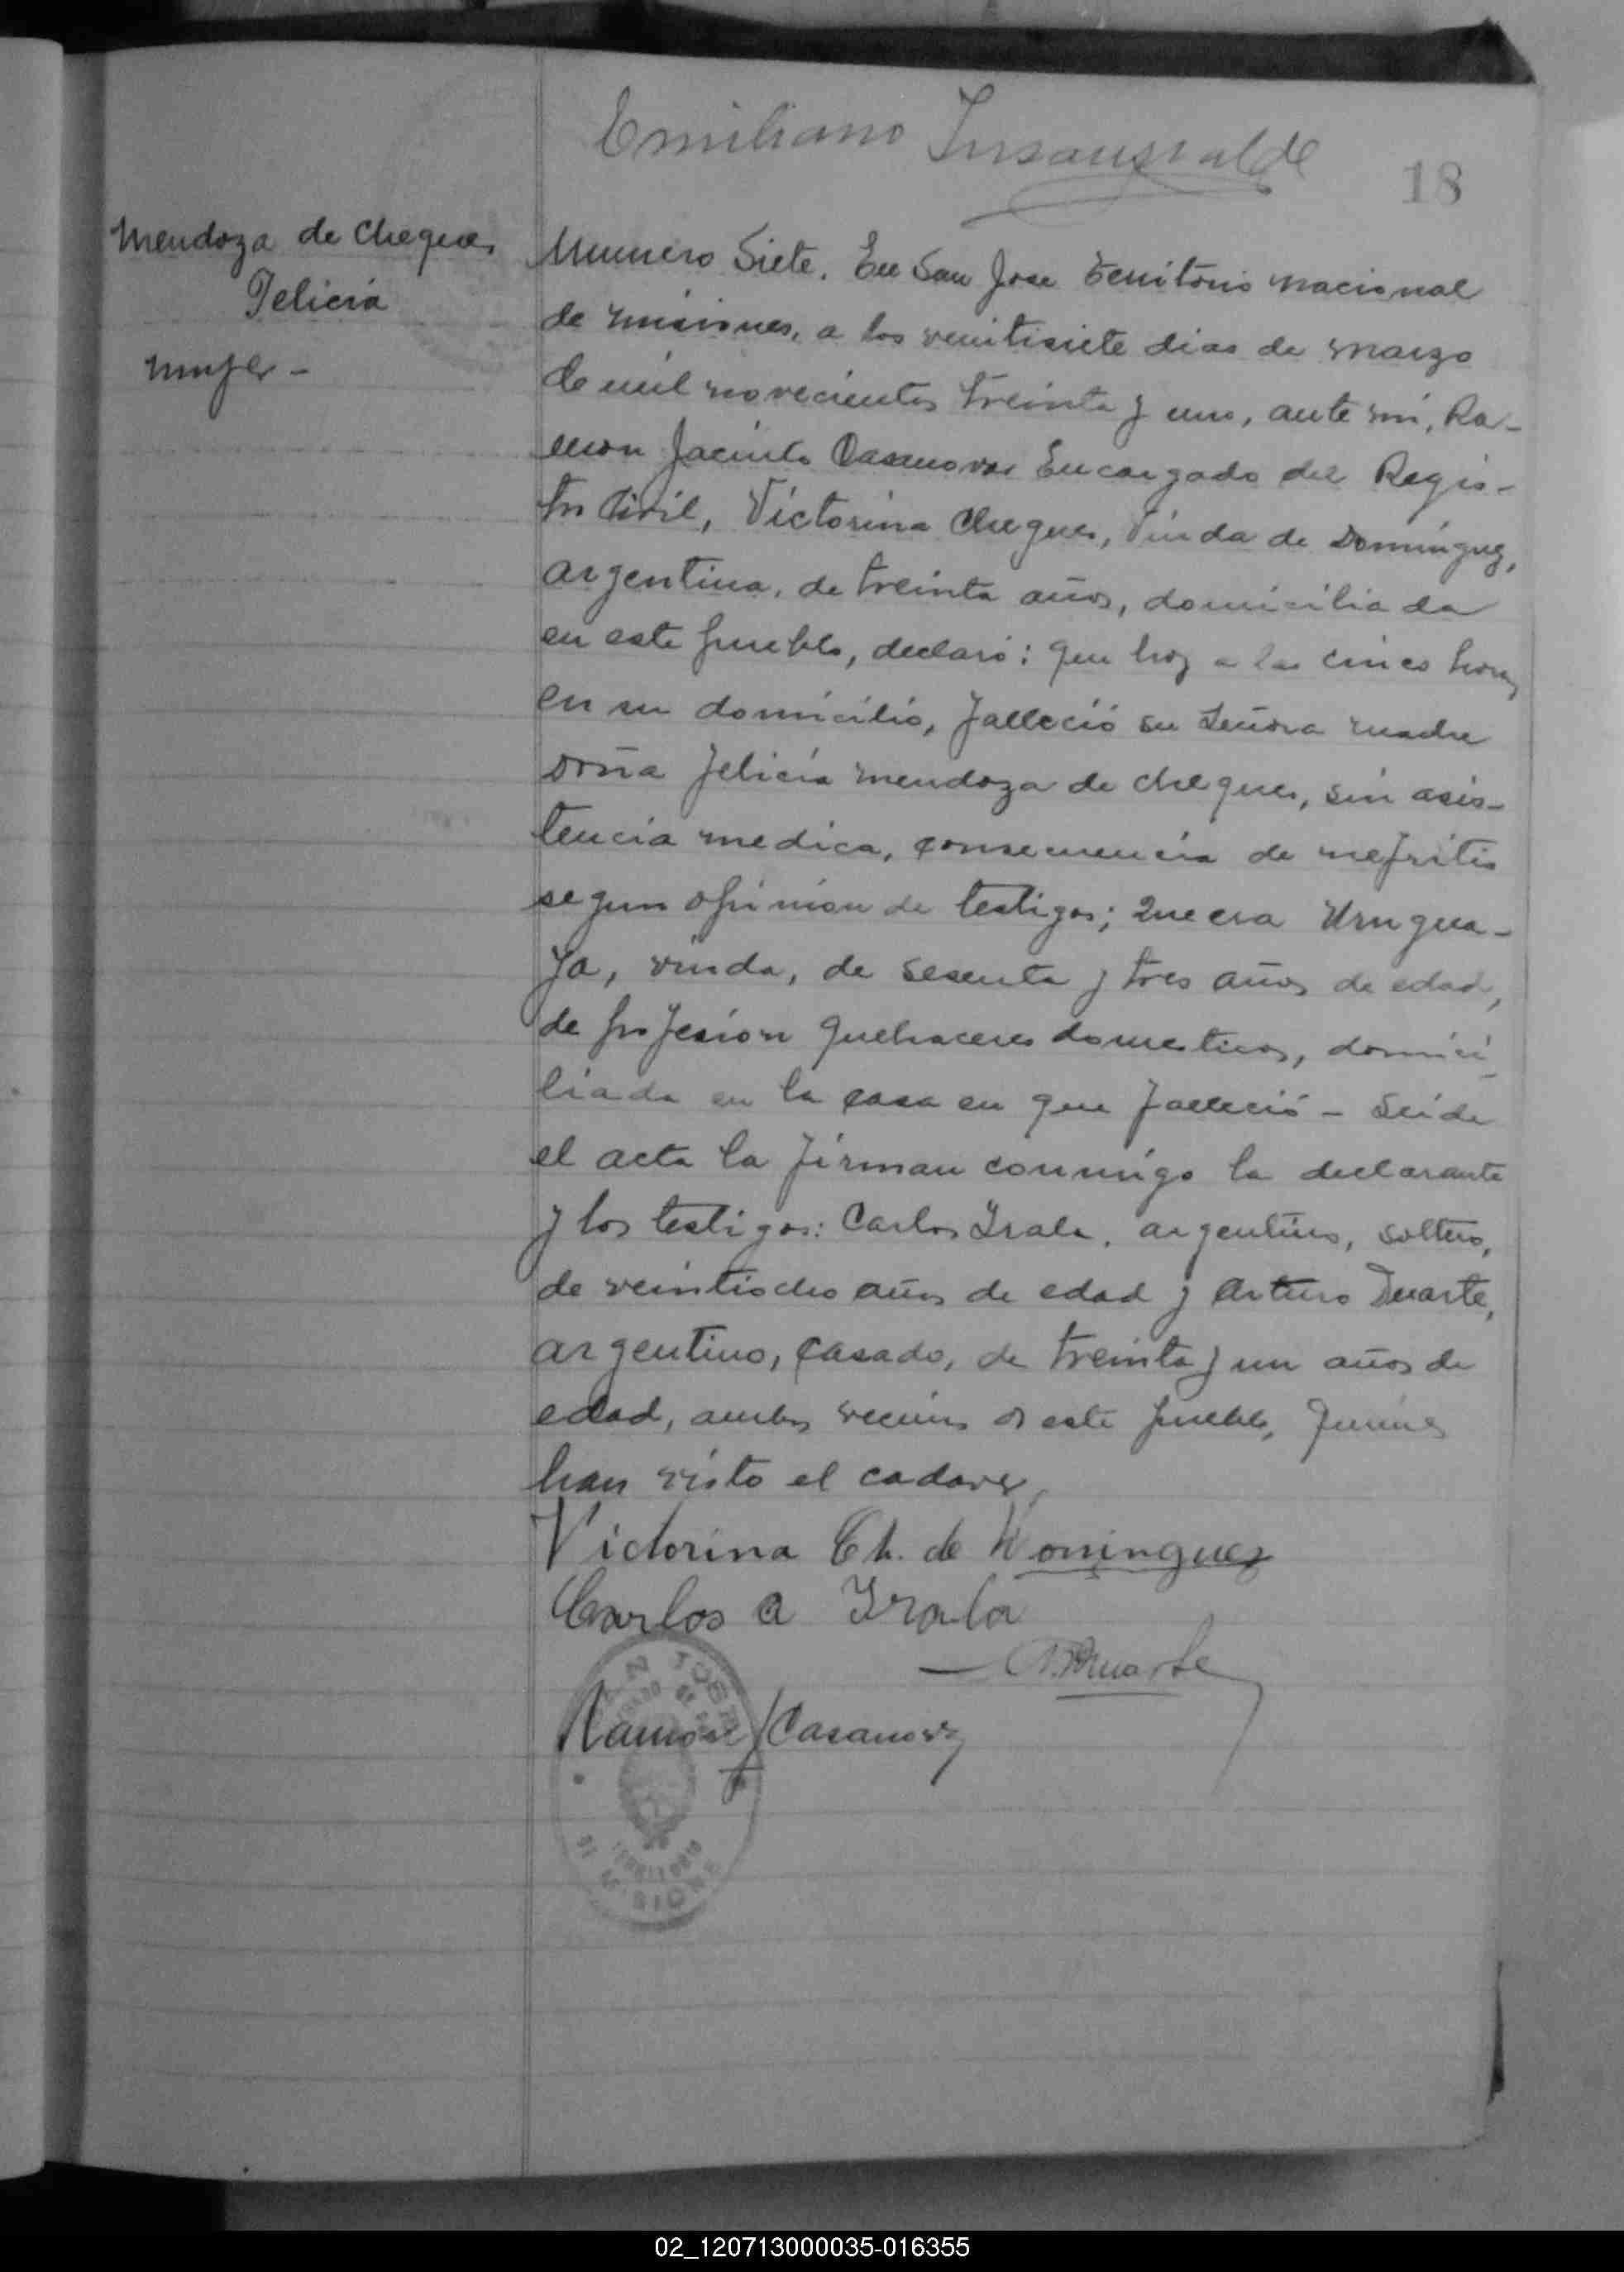 Emiliano Insaurralde
18
Mendoza de Cheques
Felicia
mujer -
Numero Siete. En San Jose territorio nacional
de misiones, a los veintisiete dias de marzo
de mil novecientos treinta y uno, ante mi, Ra-
mon Jacinto Casanova Encargado del Regis-
tro Civil, Victorina Cheques, Viuda de Dominguez,
argentina, de treinta años, domiciliada
en este pueblo, declaró: que hoy a las cinco horas
en su domicilio, falleció su señora madre
Doña Felicia Mendoza de Cheques, sin asis-
tencia medica, consecuencia de nefritis
segun opinion de testigos; que era Urugua-
ya, viuda, de sesenta y tres años de edad,
de profesion quehaceres domesticos, domici-
liada en la casa en que falleció - Leida
el acta la firman conmigo la declarante
y los testigos: Carlos Irala, argentino, soltero,
de veintiocho años de edad y Arturo Duarte,
argentino, casado, de treinta y un años de
edad, ambos vecinos de este pueblo, quienes
han visto el cadaver.
Victorina Ch. de Dominguez
Carlos A Irala
A. Duarte
Ramon J Casanova
SAN JOSE
TERRITORIO
DE MISIONES
02_120713000035-016355